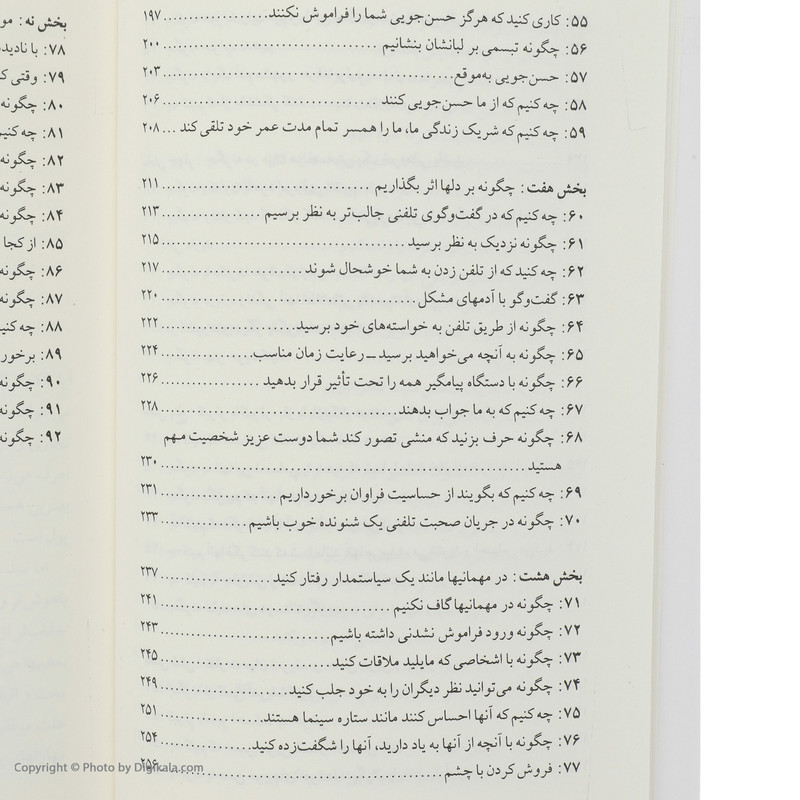 ۵۵: کاری کنید که هرگز حسن‌جویی شما را فراموش نکنند. ................ ۱۹۷
۵۶: چگونه تبسمی بر لبانشان بنشانیم ................................ ۲۰۰
۵۷: حسن‌جویی به‌موقع ................................ ۲۰۳
۵۸: چه کنیم که از ما حسن‌جویی کنند ................................ ۲۰۶
۵۹: چه کنیم که شریک زندگی ما، ما را همسر تمام مدت عمر خود تلقی کند ... ۲۰۸
بخش هفت: چگونه بر دلها اثر بگذاریم ................................ ۲۱۱
۶۰: چه کنیم که در گفت‌وگوی تلفنی جالب‌تر به نظر برسیم ................ ۲۱۳
۶۱: چگونه نزدیک به نظر برسید ................................ ۲۱۵
۶۲: چه کنید که از تلفن زدن به شما خوشحال شوند ................ ۲۱۷
۶۳: گفت‌وگو با آدمهای مشکل ................................ ۲۲۰
۶۴: چگونه از طریق تلفن به خواسته‌های خود برسید ................ ۲۲۲
۶۵: چگونه به آنچه می‌خواهید برسید ــ رعایت زمان مناسب ................ ۲۲۴
۶۶: چگونه با دستگاه پیامگیر همه را تحت تأثیر قرار بدهید ................ ۲۲۶
۶۷: چه کنیم که به ما جواب بدهند ................................ ۲۲۸
۶۸: چگونه حرف بزنید که منشی تصور کند شما دوست عزیز شخصیت مهم
هستید ................................ ۲۳۰
۶۹: چه کنیم که بگویند از حساسیت فراوان برخورداریم ................ ۲۳۱
۷۰: چگونه در جریان صحبت تلفنی یک شنونده خوب باشیم ................ ۲۳۳
بخش هشت: در مهمانیها مانند یک سیاستمدار رفتار کنید ................ ۲۳۷
۷۱: چگونه در مهمانیها گاف نکنیم ................................ ۲۴۱
۷۲: چگونه ورود فراموش نشدنی داشته باشیم ................ ۲۴۳
۷۳: چگونه با اشخاصی که مایلید ملاقات کنید ................ ۲۴۵
۷۴: چگونه می‌توانید نظر دیگران را به خود جلب کنید ................ ۲۴۹
۷۵: چه کنیم که آنها احساس کنند مانند ستاره سینما هستند ................ ۲۵۱
۷۶: چگونه با آنچه از آنها به یاد دارید، آنها را شگفت‌زده کنید ................ ۲۵۴
۷۷: فروش کردن با چشم ................................ ۲۵۶
بخش نه:
۷۸: با
۷۹: وقتی
۸۰: چگونه
۸۱: چه کنیم
۸۲: چگونه
۸۳: چگونه
۸۴: چگونه
۸۵: از کجا
۸۶: چگونه
۸۷: چگونه
۸۸:
۸۹:
۹۰: چگونه
۹۱: چگونه
۹۲: چگونه
Copyright © Photo by Digikala.com